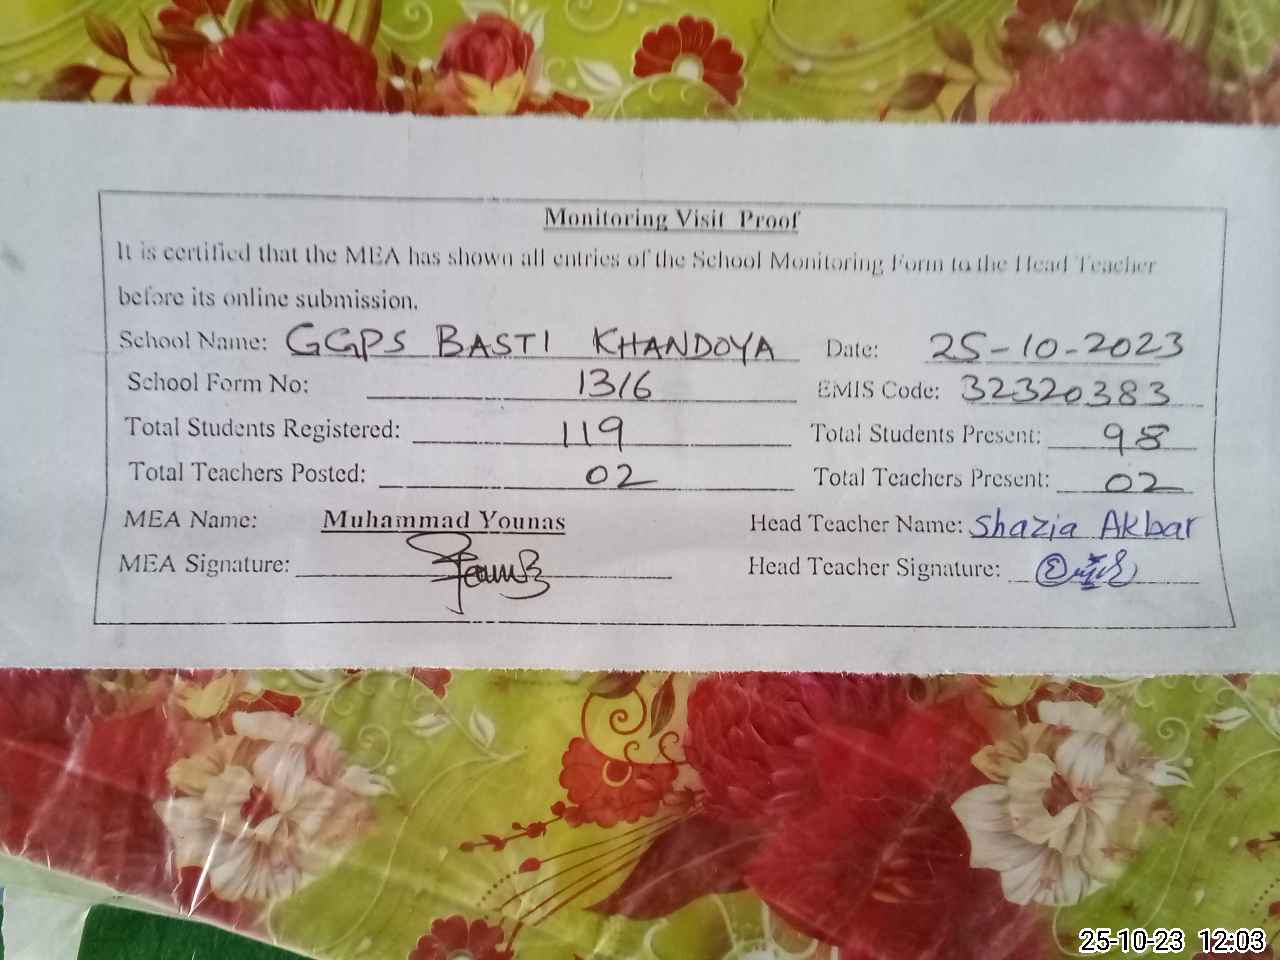 Monitoring Visit Proof
It is certified that the MEA has shown all entries of the School Monitoring Form to the Head Teacher
before its online submission.
School Name: GGPS BASTI KHANDOYA Date: 25-10-2023
School Form No: 1316 EMIS Code: 32320383
Total Students Registered: 119 Total Students Present: 98
Total Teachers Posted: 02 Total Teachers Present: 02
MEA Name: Muhammad Younas Head Teacher Name: Shazia Akbar
MEA Signature: Head Teacher Signature:
25-10-23 12:03